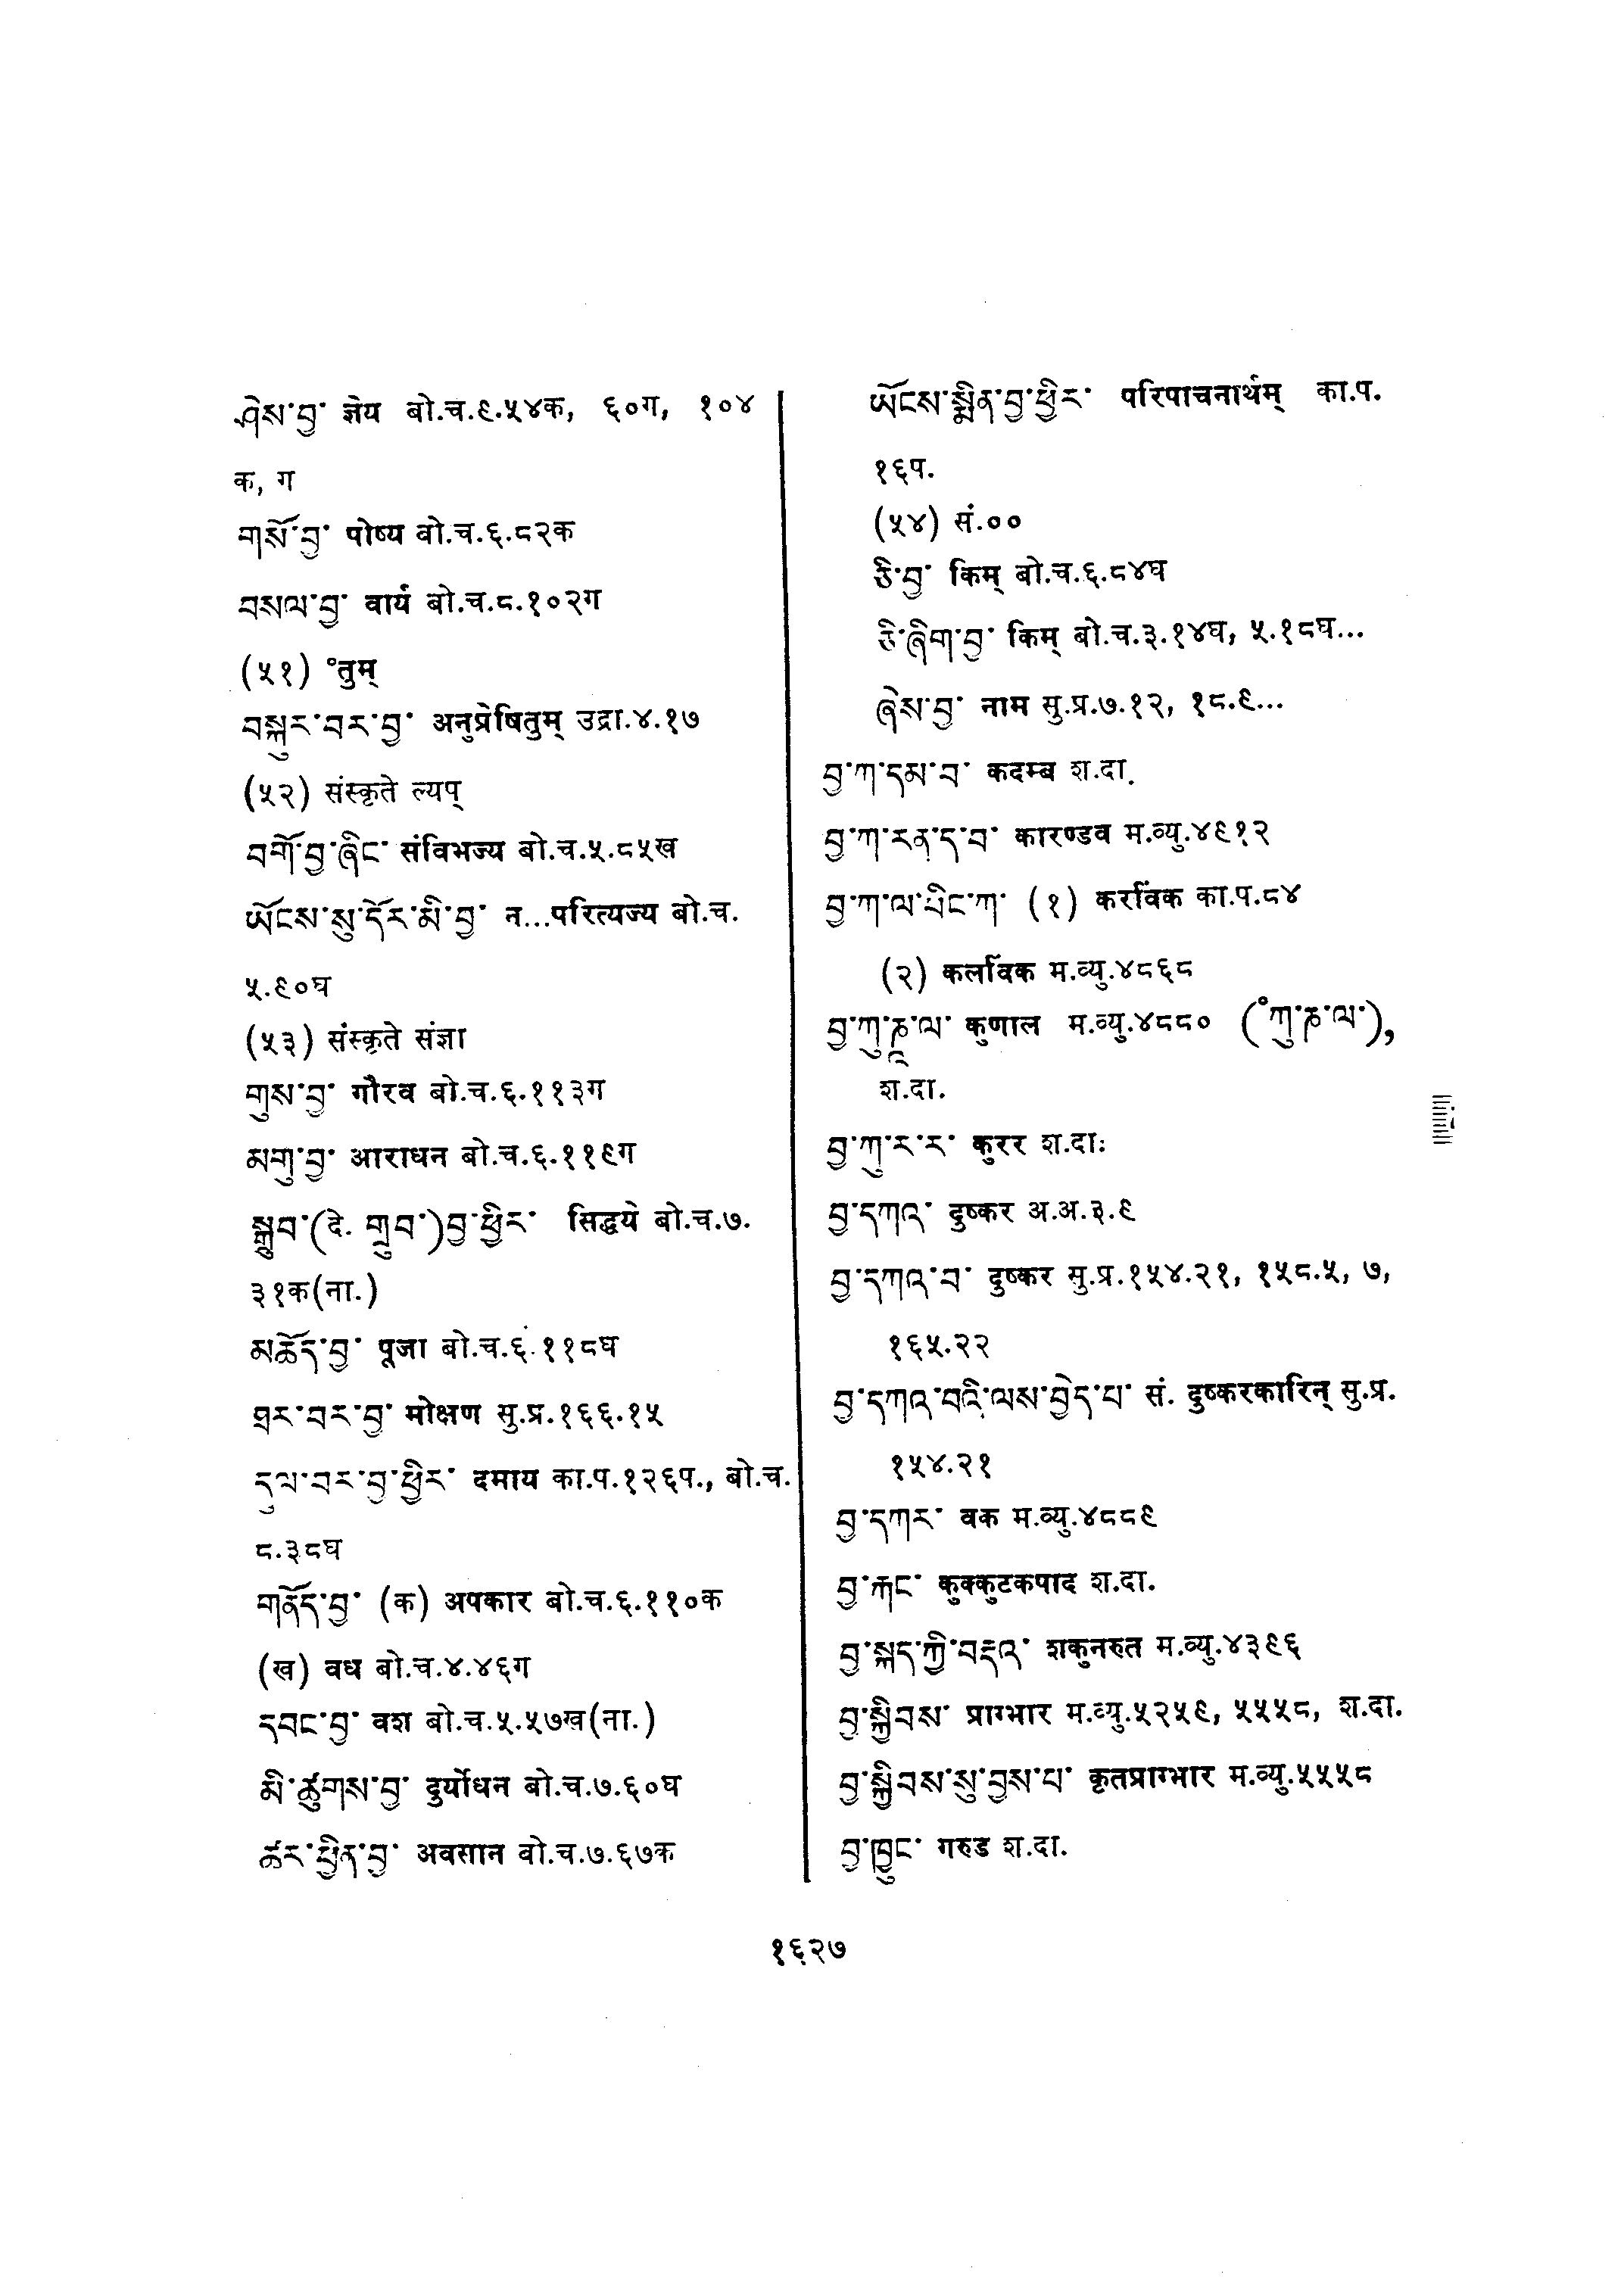 ཤེས་བྱ་ ज्ञेय बो.च.९.५४क, ६०ग, १०४
क, ग
གསོ་བྱ་ पोष्य बो.च.६.८२क
བསལ་བྱ་ वार्य बो.च.८.१०२ग
(५१) °तुम्
བསྐུར་བར་བྱ་ अनुप्रेषितुम् उद्रा.४.१७
(५२) संस्कृते ल्यप्
བགོ་བྱ་ཞིང་ संविभज्य बो.च.५.८५ख
ཡོངས་སུ་དོར་མི་བྱ་ न...परित्यज्य बो.च.
५.९०घ
(५३) संस्कृते संज्ञा
གུས་བྱ་ गौरव बो.च.६.११३ग
མགུ་བྱ་ आराधन बो.च.६.११९ग
སྒྲུབ་(दे. གྲུབ་)བྱ་ཕྱིར་ सिद्धये बो.च.७.
३१क(ना.)
མཆོད་བྱ་ पूजा बो.च.६.११८घ
ཐར་བར་བྱ་ मोक्षण सु.प्र.१६६.१५
དུལ་བར་བྱ་ཕྱིར་ दमाय का.प.१२६प., बो.च.
८.३८घ
གནོད་བྱ་ (क) अपकार बो.च.६.११०क
(ख) वध बो.च.४.४६ग
དབང་བྱ་ वश बो.च.५.५७ख(ना.)
མི་ཚུགས་བྱ་ दुर्योधन बो.च.७.६०घ
ཚར་ཕྱིན་བྱ་ अवसान बो.च.७.६७क
ཡོངས་སྨིན་བྱ་ཕྱིར་ परिपाचनार्थम् का.प.
१६प.
(५४) सं.००
ཅི་བྱ་ किम् बो.च.६.८४घ
ཅི་ཞིག་བྱ་ किम् बो.च.३.१४घ, ५.१८घ...
ཞེས་བྱ་ नाम सु.प्र.७.१२, १८.९...
བྱ་ཀ་དམ་བ་ कदम्ब श.दा.
བྱ་ཀ་རན་ད་བ་ कारण्डव म.व्यु.४९१२
བྱ་ཀ་ལ་པིང་ཀ་ (१) करविंक का.प.८४
(२) कलविंक म.व्यु.४८६८
བྱ་ཀུ་ཎཱ་ལ་ कुणाल म.व्यु.४८८० (°ཀུ་ཎ་ལ་),
श.दा.
བྱ་ཀུ་ར་ར་ कुरर श.दा.
བྱ་དཀའ་ दुष्कर अ.अ.३.९
བྱ་དཀའ་བ་ दुष्कर सु.प्र.१५४.२१, १५८.५, ७,
१६५.२२
བྱ་དཀའ་བའི་ལས་བྱེད་པ་ सं. दुष्करकारिन् सु.प्र.
१५४.२१
བྱ་དཀར་ वक म.व्यु.४८८९
བྱ་རྐང་ कुक्कुटकपाद श.दा.
བྱ་སྐད་ཀྱི་བརྡའ་ शकुनरुत म.व्यु.४३९६
བྱ་སྐྱིབས་ प्राग्भार म.व्यु.५२५९, ५५५८, श.दा.
བྱ་སྐྱིབས་སུ་བྱས་པ་ कृतप्राग्भार म.व्यु.५५५८
བྱ་ཁྱུང་ गरुड श.दा.
१६२७